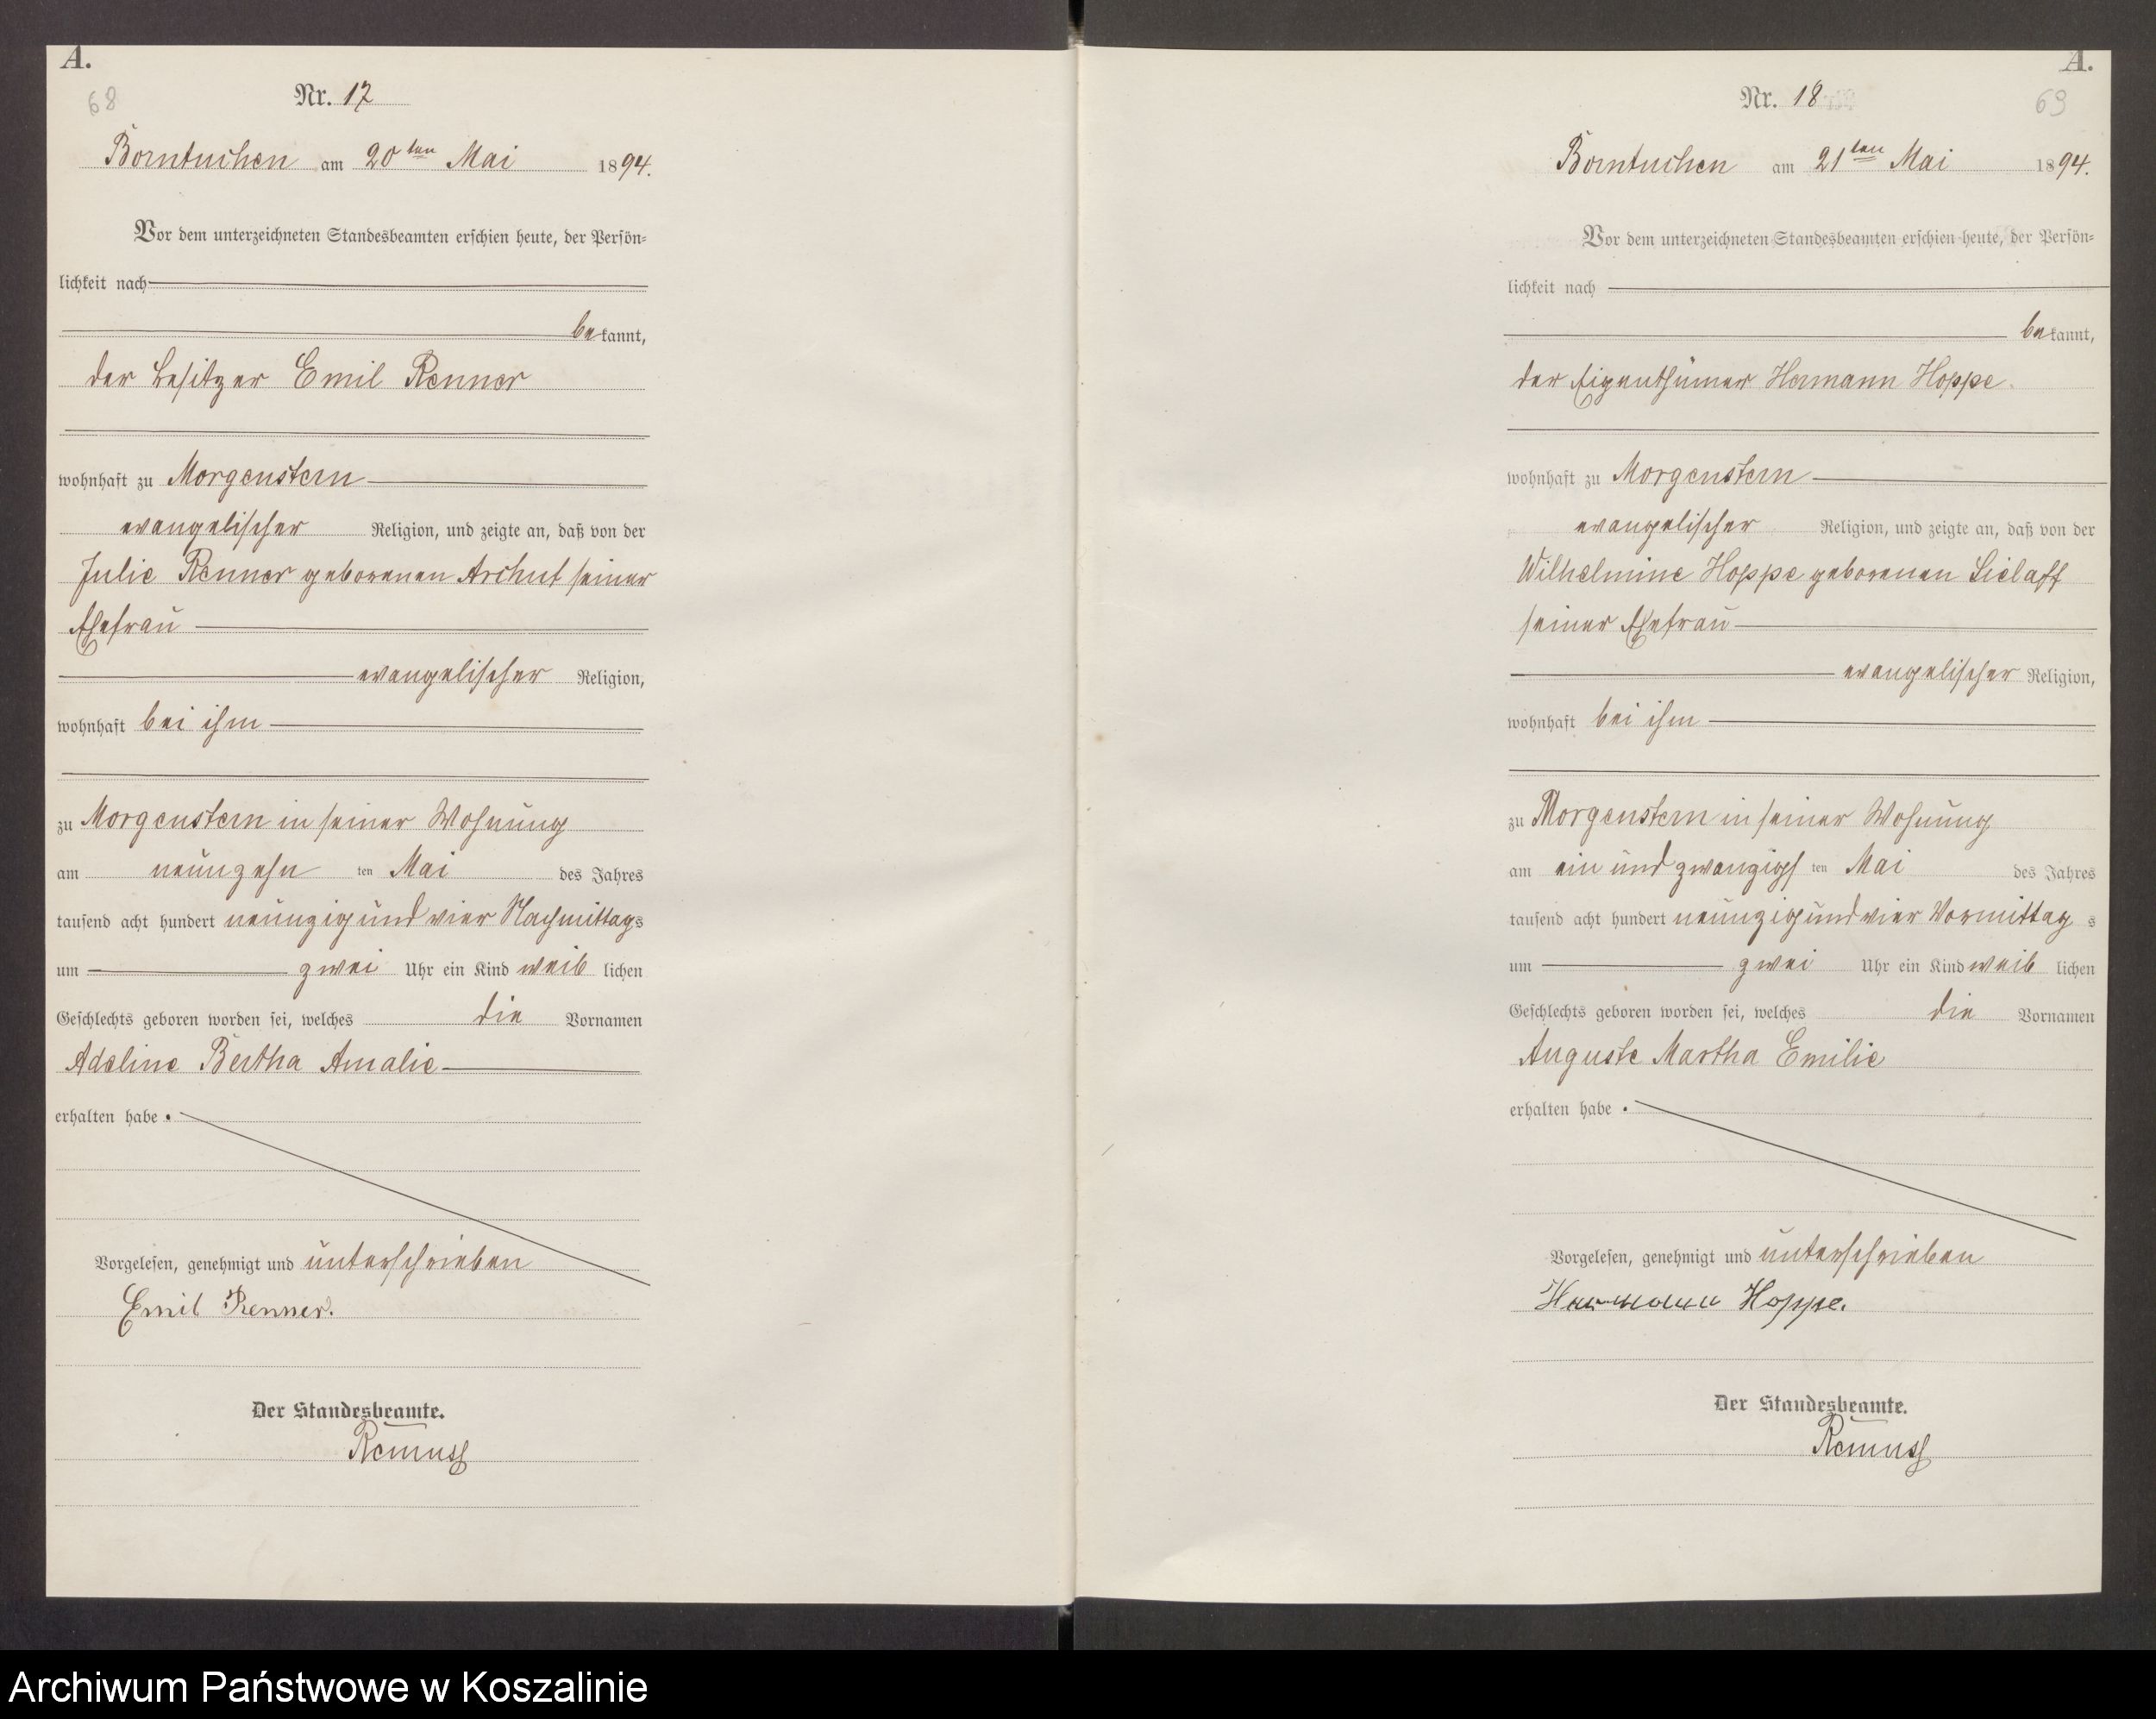 A.
68
Nr. 17
Borntuchen am 20ten Mai 1894.
Vor dem unterzeichneten Standesbeamten erschien heute, der Persön=
lichkeit nach
bekannt,
der Besitzer Emil Renner
wohnhaft zu Morgenstern
evangelischer Religion, und zeigte an, daß von der
Julie Renner geborenen Archut seiner
Ehefrau
evangelischer Religion,
wohnhaft bei ihm
zu Morgenstern in seiner Wohnung
am neunzehn ten Mai des Jahres
tausend acht hundert neunzig und vier Nachmittags
um zwei Uhr ein Kind weiblichen
Geschlechts geboren worden sei, welches die Vornamen
Adeline Bertha Amalie
erhalten habe.
Vorgelesen, genehmigt und unterschrieben
Emil Renner.
Der Standesbeamte.
Remuss
A.
Nr. 18
69
Borntuchen am 21ten Mai 1894.
Vor dem unterzeichneten Standesbeamten erschien heute, der Persön=
lichkeit nach
bekannt,
der Eigenthümer Hermann Hoppe.
wohnhaft zu Morgenstern
evangelischer Religion, und zeigte an, daß von der
Wilhelmine Hoppe geborenen Sielaff
seiner Ehefrau
evangelischer Religion,
wohnhaft bei ihm
zu Morgenstern in seiner Wohnung
am ein und zwanzigs ten Mai des Jahres
tausend acht hundert neunzig und vier Vormittags
um zwei Uhr ein Kind weiblichen
Geschlechts geboren worden sei, welches die Vornamen
Auguste Martha Emilie
erhalten habe.
Vorgelesen, genehmigt und unterschrieben
Hermann Hoppe.
Der Standesbeamte.
Remuss
Archiwum Państwowe w Koszalinie